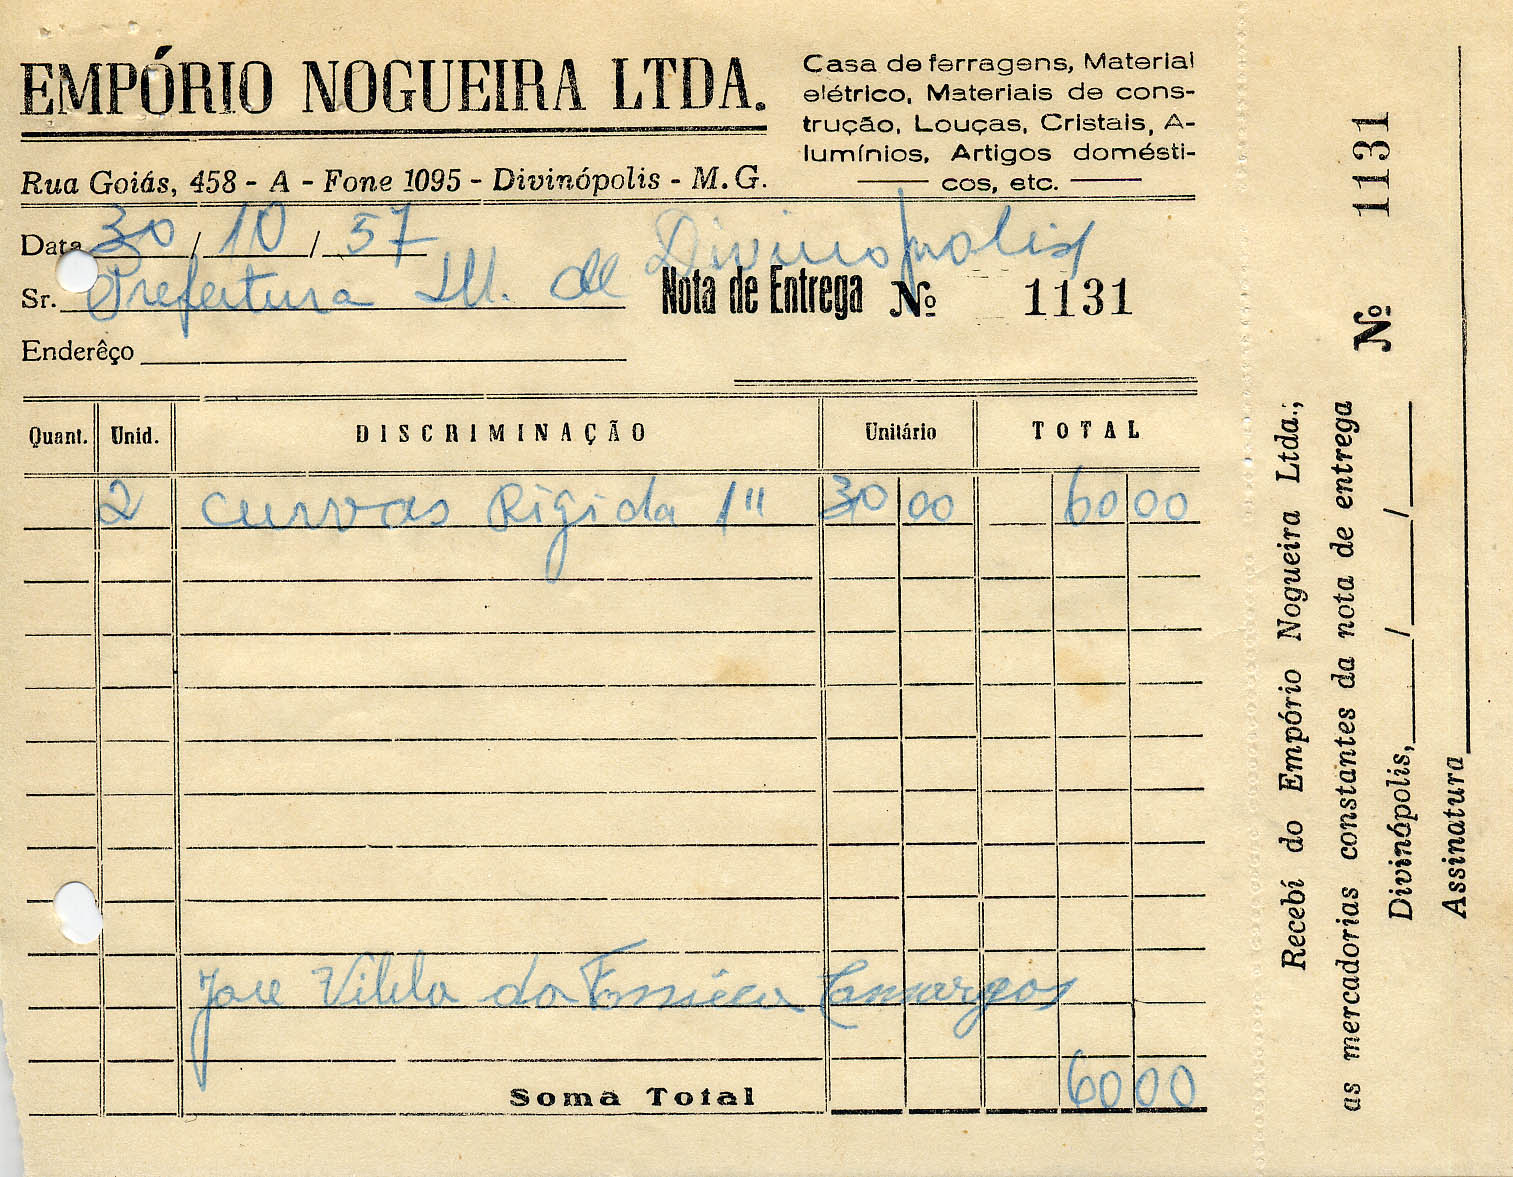 EMPÓRIO NOGUEIRA LTDA.
Casa de ferragens, Material
elétrico, Materiais de cons-
trução, Louças, Cristais, A-
lumínios, Artigos domésti-
cos, etc.
Rua Goiás, 458 - A - Fone 1095 - Divinópolis - M.G.
Data 30/10/57
Sr. Prefeitura M. de Divinopolis
Nota de Entrega Nº 1131
Enderêço
Quant. Unid. DISCRIMINAÇÃO Unitário TOTAL
2 curvas Rigida 1" 30 00 60 00
Jose Vilela da Fonseca Camargos
Soma Total 60 00
Recebí do Empório Nogueira Ltda.,
as mercadorias constantes da nota de entrega Nº 1131
Divinópolis, / /
Assinatura